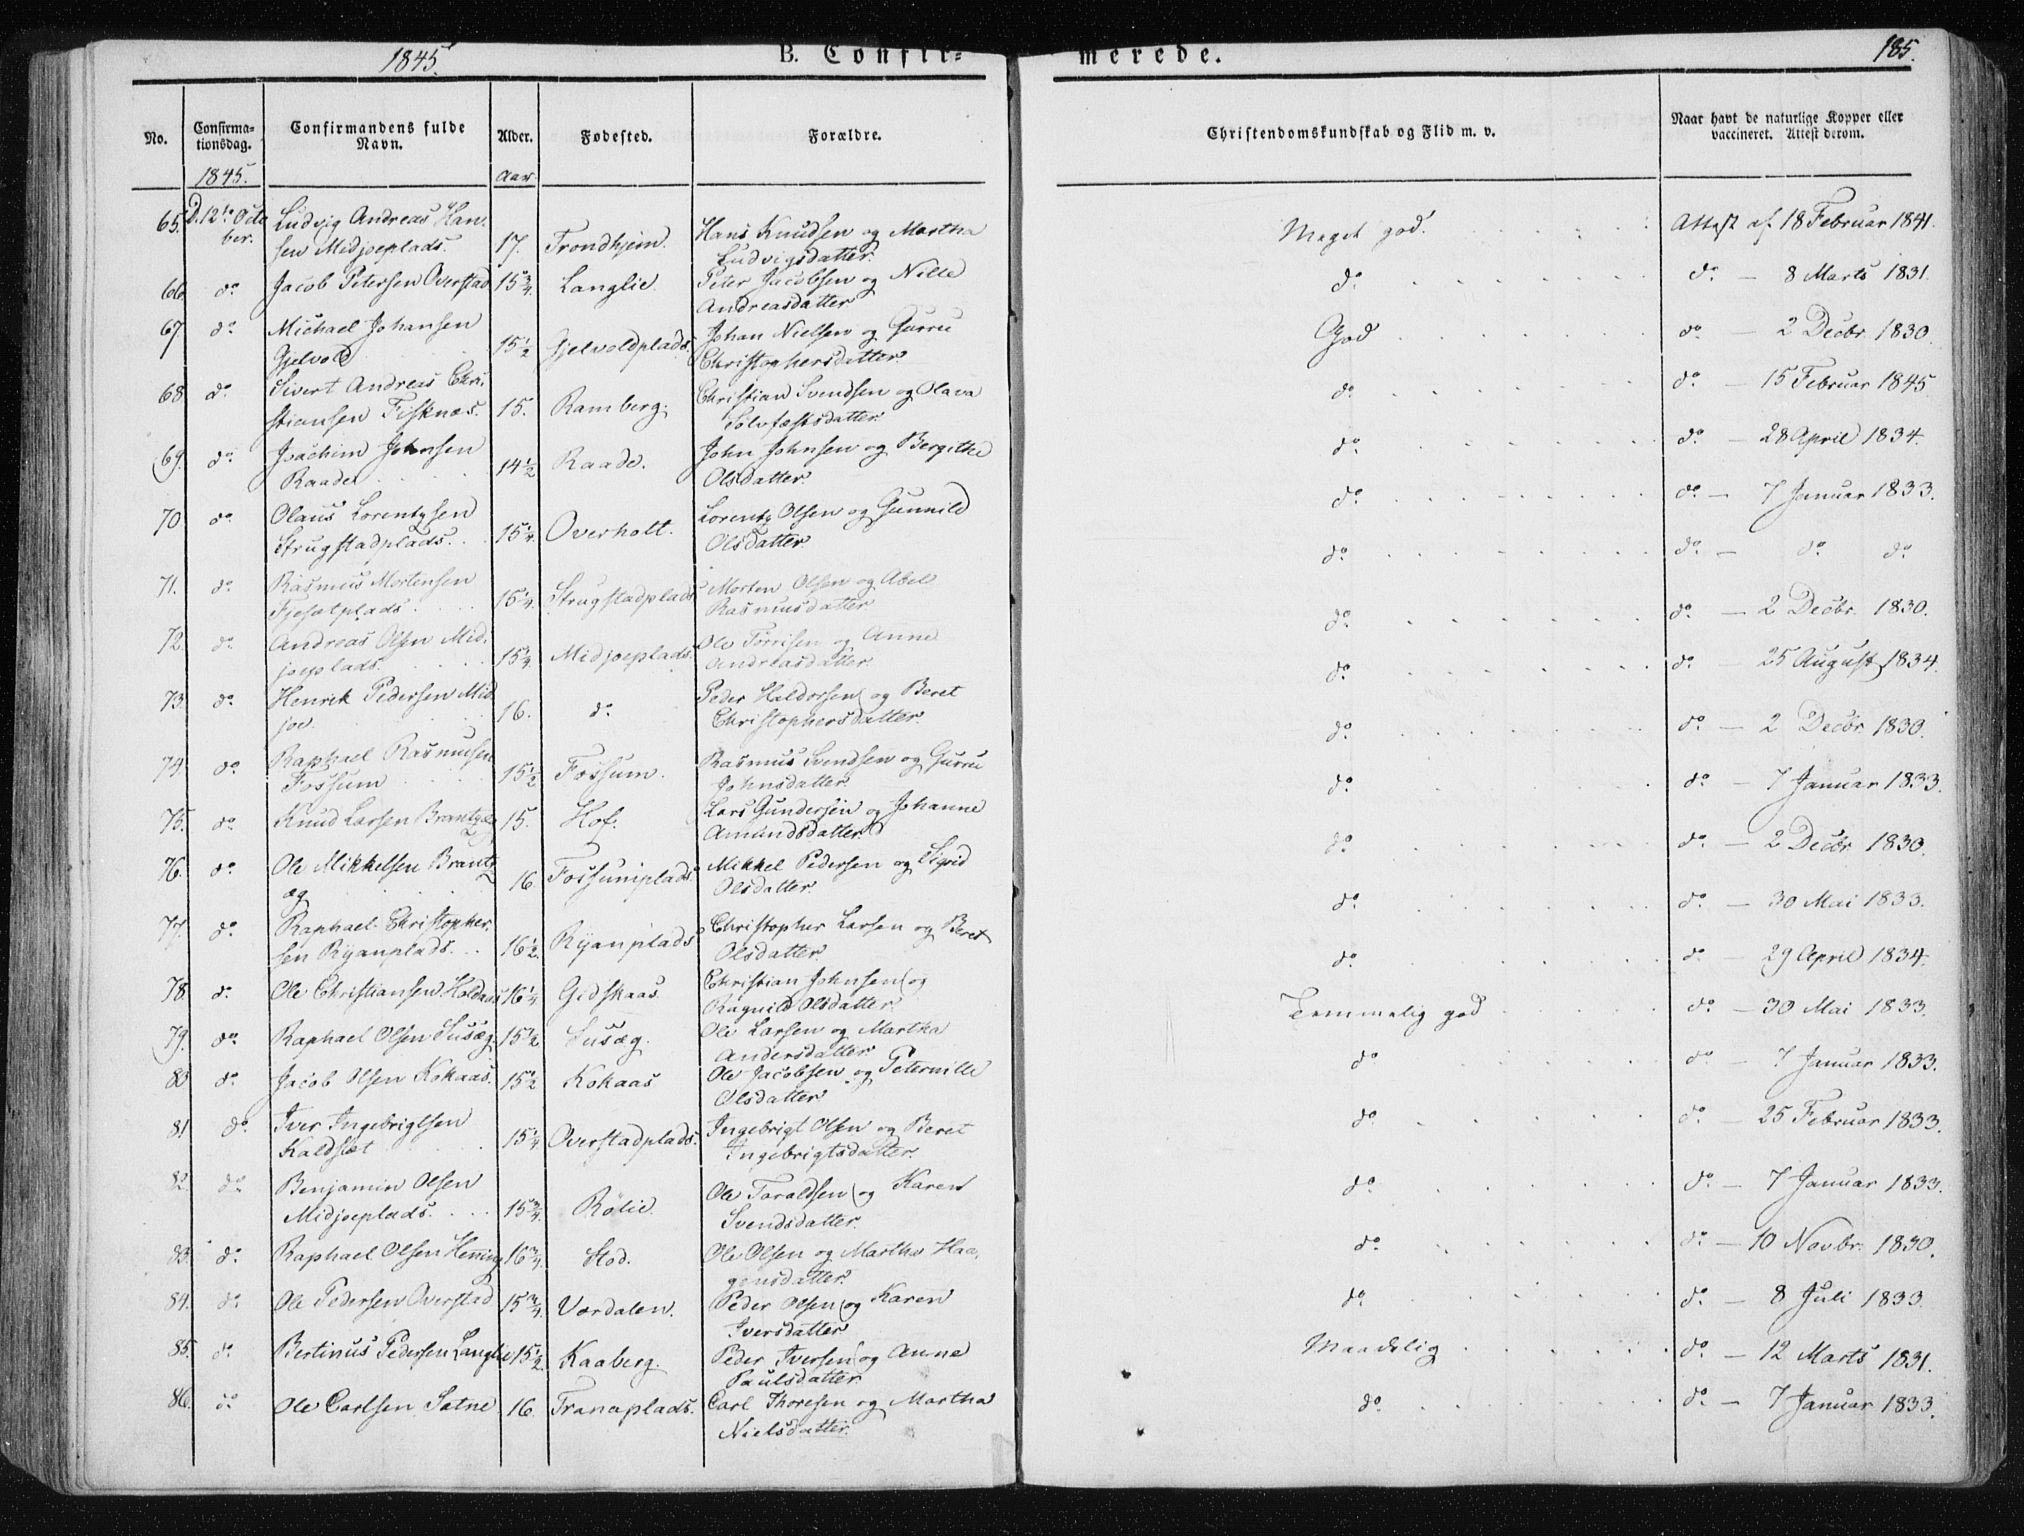 1845.
B. Confir=
merede.
185.
No.
Confirma-
tionsdag.
Confirmandens fulde
Navn.
Alder.
Fødested.
Forældre.
Christendomskundskab og Flid m. v.
Naar havt de naturlige Kopper eller
vaccineret. Attest derom.
1845.
Aar
65. D. 12te Octo Ludvig Andreas Han- Hans Knudsen og Martha
ber. sen Midjoeplads. 17. Trondhjem. Ludvigsdatter. Meget god. Attest af 18 Februar 1841.
66. do Jacob Petersen Overstad 15 3/4. Langlie. Peter Jacobsen og Nille
Andreasdatter do. do. — 8 Marts 1831.
67. do Michael Johansen Johan Nielsen og Gurru
Gjelvold 15 1/2 Gjelvoldplads. Christophersdatter. God do. — 2 Decbr. 1830.
68. do. Sivert Andreas Chri- Christian Svendsen og Olava
stiansen Fisknæs. 15. Ramberg. Solvfæstsdatter. do. do. — 15 Februar 1845.
69. do. Joachim Johnsen John Johnsen og Bergithe
Raade 14 1/2 Raade. Olsdatter. do. do. — 28 April 1834.
70. do. Olaus Lorentzsen Lorentz Olsen og Gunnild
Strugstadplads. 15 1/4. Overholt. Olsdatter. do. do. — 7 Januar 1833.
71. do. Rasmus Mortensen Morten Olsen og Abel
Fjesætplads. 15 1/4. Strugstadplads Rasmusdatter do. do. — do. do.
72. do. Andreas Olsen Mid- Ole Torrisen og Anne
joeplads. 15 1/4. Midjoeplads. Andreasdatter. do. do. — 2 Decbr. 1830.
73. do. Henrik Pedersen Mid Peder Haldorsen og Beret
joe. 16. do. Christophersdatter. do. do. — 25 August 1834.
74. do. Raphael Rasmusen Rasmus Svendsen og Gurru
Fossum 15 1/2 Fossum. Johnsdatter. do. do. — 2 Decbr. 1830.
75. do. Knud Larsen Brantzæg 15. Hof. Lars Gundersen og Johanne
Amundsdatter do. do. — 7 Januar 1833.
76. do. Ole Mikkelsen Brantz Mikkel Pedersen og Sigrid
æg 16 Fossumplads Olsdatter. do. do. — 2 Decbr. 1830.
77. do. Raphael Christopher- Christopher Larsen og Beret
sen Ryanplads. 16 1/2. Ryanplads Olsdatter. do. do. — 30 Mai 1833.
78. do. Ole Christiansen Holdaas 16 1/4 Gidskaas. Christian Johnsen og
Ragnild Olsdatter. do. do. — 29 April 1834.
79. do. Raphael Olsen Susæg. 15 1/2 Susæg. Ole Larsen og Martha
Andersdatter. Temmelig god do. — 30 Mai 1833.
80 do. Jacob Olsen Kokaas. 15 1/2 Kokaas Ole Jacobsen og Peternille
Olsdatter do. do. — 7 Januar 1833.
81 do. Iver Ingebrigtsen Ingebrigt Olsen og Beret
Kaldsæt 15 1/4 Overstadplads. Ingebrigtsdatter. do. do. — 25 Februar 1833.
82. do. Benjamin Olsen Ole Taraldsen og Karen
Midjoeplads. 15 3/4. Rölie. Svendsdatter. do. do. — 7 Januar 1833.
83. do. Raphael Olsen Hening 16 3/4. Stod. Ole Olsen og Martha Haa-
gensdatter. do. do. — 10 Novbr. 1830.
84. do. Ole Pedersen Overstad 15 3/4 Værdalen. Peder Olsen og Karen
Iversdatter do. do. — 8 Juli 1833.
85. do. Bertinus Pedersen Langlie 15 1/2. Kaaberg. Peder Iversen og Anne
Paulsdatter. Maadelig do. — 12 Marts 1831.
86. do Ole Carlsen Satne 16. Tranaplads. Carl Thoresen og Martha
Nielsdatter. do. do. — 7 Januar 1833.